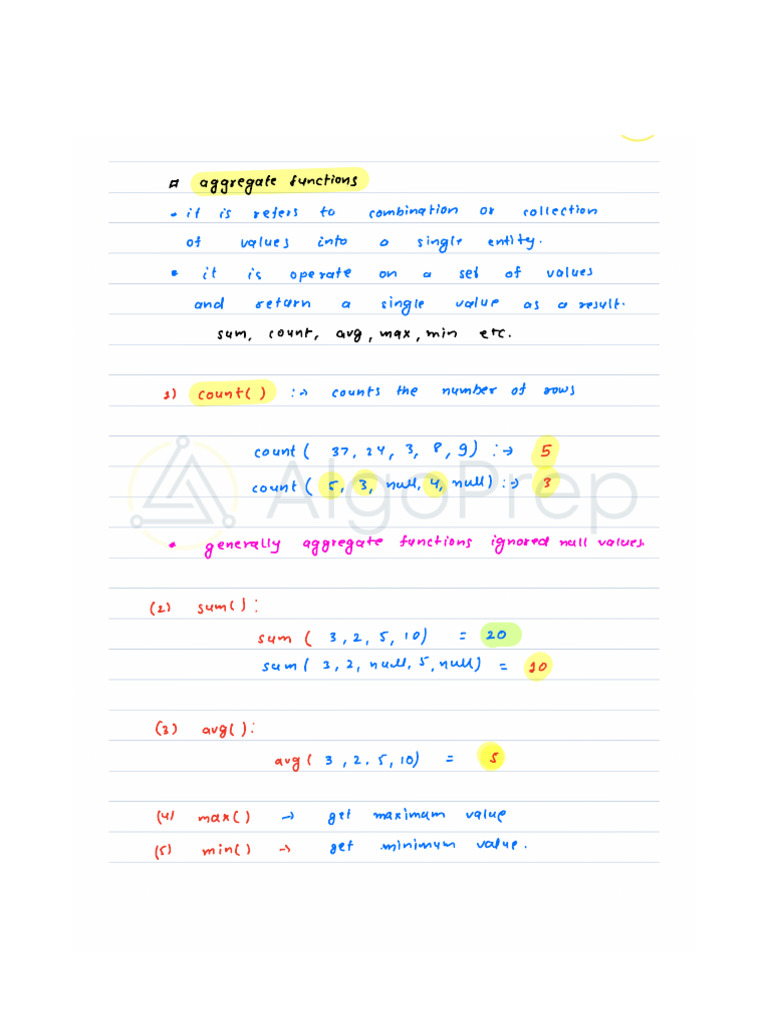 aggregate functions
• it is refers to combination or collection
of values into a single entity.
• it is operate on a set of values
and return a single value as a result.
sum, count, avg, max, min etc.
1) count() :→ counts the number of rows
count( 37, 24, 3, 8, 9) :→ 5
count( 5, 3, null, 4, null) :→ 3
AlgoPrep
• generally aggregate functions ignored null values
(2) sum():
sum( 3, 2, 5, 10) = 20
sum( 3, 2, null, 5, null) = 10
(3) avg():
avg( 3, 2. 5, 10) = 5
(4) max() → get maximum value
(5) min() → get minimum value.